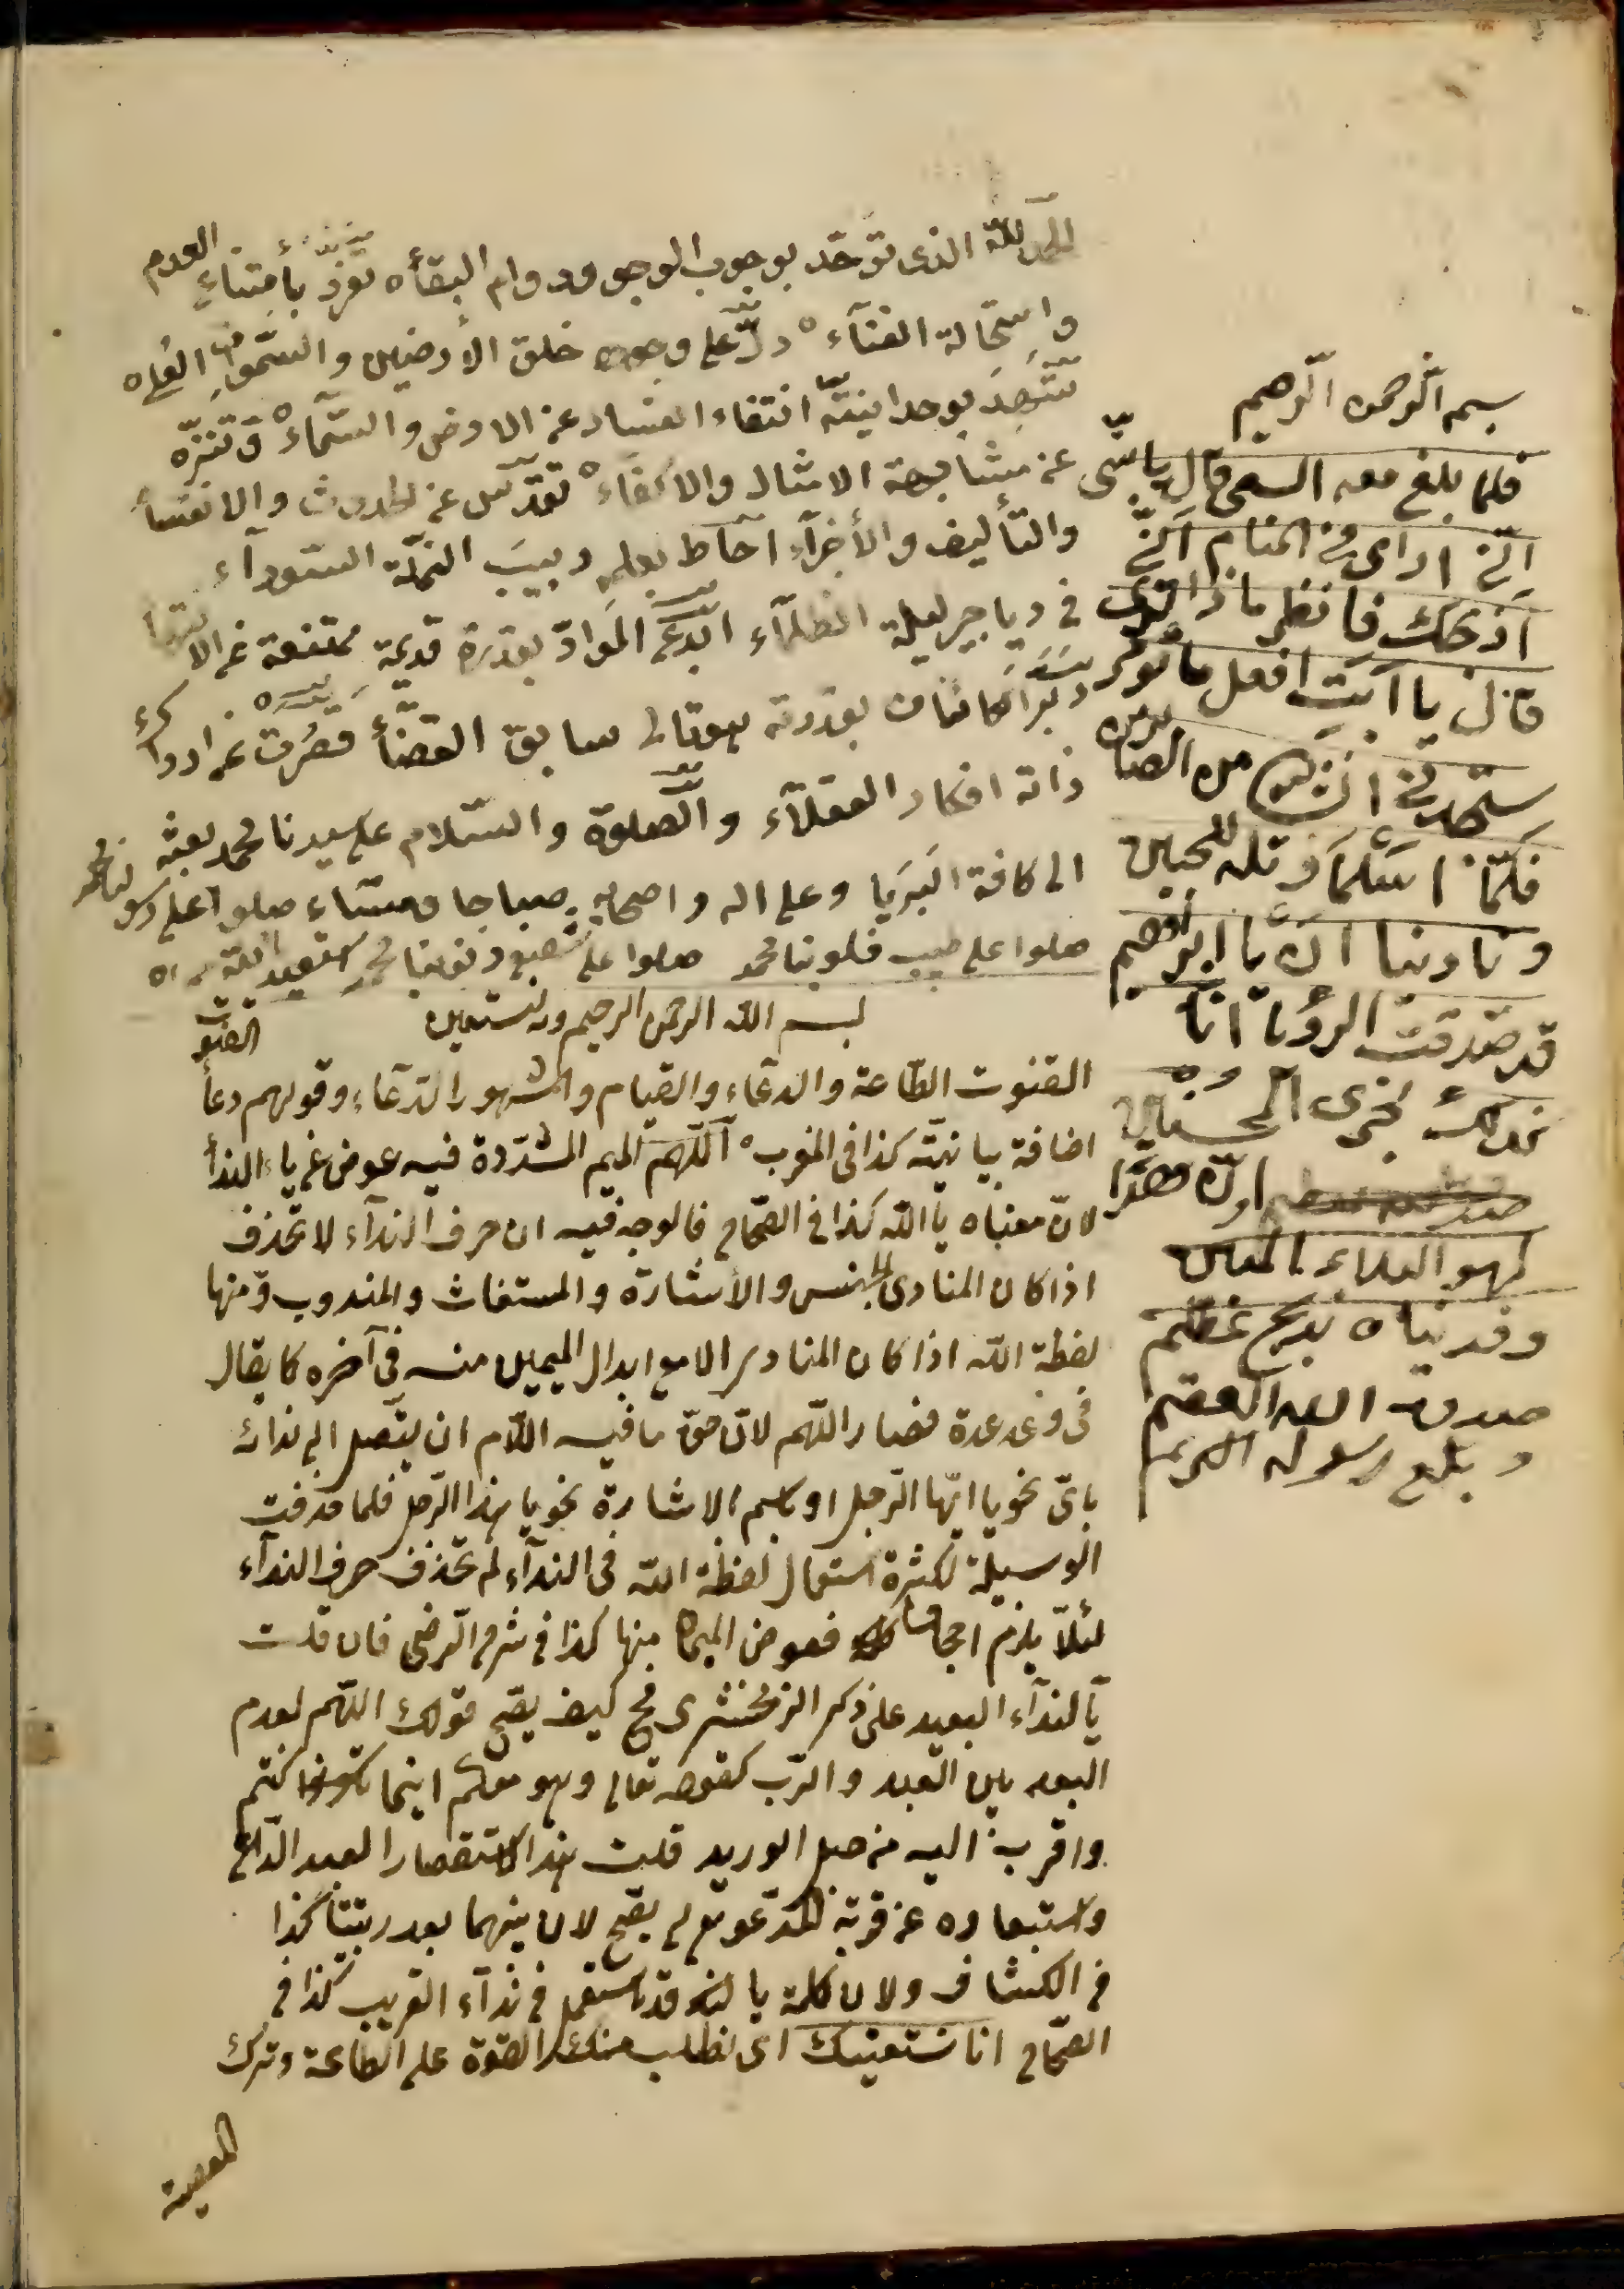 الحمد لله الذى توحّد بوجوب الوجود ودوام البقآء تفرّد بأمتناع العدم
واستحالة الفنآء دلّ على وجوده خلق الأرضين والسّموات العلى
شهد بوحدانيته انتفاء الفساد عن الارض والسّمآء وتنزّه
عن مشابهة الامثال والاكفآء تقدّس عن الحدوث والانقسام
والتأليف والأجزآء احاط بعلمه دبيب النملة السّودآء
فى دياجير ليلة الظلمآء ابدع الموادّ بقدرة قديمة ممتنعة عن الانتهاء
دبّر الكائنات بقدرته هو تعالى سابق القضآء قصرت عن ادراك
ذاته افكار العقلآء والصلوة والسّلام على سيدنا محمد بعثه
الى كافة البرايا وعلى اله واصحابه صباحا ومسّاء صلوا على رسولنا محمد
صلوا على طبيب قلوبنا محمد صلوا على شفيع ذنوبنا محمد
بسم الله الرحمن الرحيم وبه نستعين
القنوت الطّاعة والدعآء والقيام والمشهور الدّعآء وقولهم دعآء القنوت
اضافة بيانيّة كذا فى المغرب اللّهمّ الميم المشدّدة فيه عوض عن ياء الندآء
لانّ معناه يا الله كذا فى الصّحاح فالوجه فيه ان حرف النداء لا تحذف
اذا كان المنادى الجنس والأشارة والمستغاث والمندوب ومنها
لفظة الله اذا كان المنادى الا مع ابدال الميمين منه فى آخره كما يقال
فى وعد عدة فصار اللّهم لانّ حقّ ما فيه اللّام ان يتّصل الى ندائه
باىّ نحو يا ايّها الرّجل او باسم الاشارة نحو يا هذا الرّجل فلما حذفت
الوسيلة لكثرة استعمال لفظة الله فى الندآء لم تحذف حرف الندآء
لئلّا يلزم اجحافا فعوض الميمان منها كذا فى شرح الرّضى فان قلت
يا لندآء البعيد على ذكر الزمخشرى فح كيف يصحّ قولك اللّهم لعدم
البعد بين العبد والرّب كقوله تعالى وهو معكم اينما كنتم
واقرب اليه من حبل الوريد قلت هذا لاستقصار العبد الدّاعى
واستبعاده عن قربة المدعو لم يصحّ لان بينهما بعد رتبتنا كذا
فى الكشاف ولان كلمة يا قد تستعمل فى ندآء القريب كذا فى
الصّحاح انا نستعينك اى نطلب منك القوة على الطاعة وترك
المعصية
بسم الله الرحمن الرحيم
فلما بلغ معه السعى قال يا بنّى
انّى ارى فى المنام انّى
اذبحك فانظر ما ذا ترى
قال يا ابت افعل ما تؤمر
ستجدنى ان شآء الله من الصابرين
فلمّا اسلما وتله للجبين
وناديناه ان يا ابراهيم
قد صدقت الرؤيا انّا
كذلك نجزى المحسنين
انّ هذا
لهو البلاء المبين
وفديناه بذبح عظيم
صدق الله العظيم
وبلغ رسوله الكريم